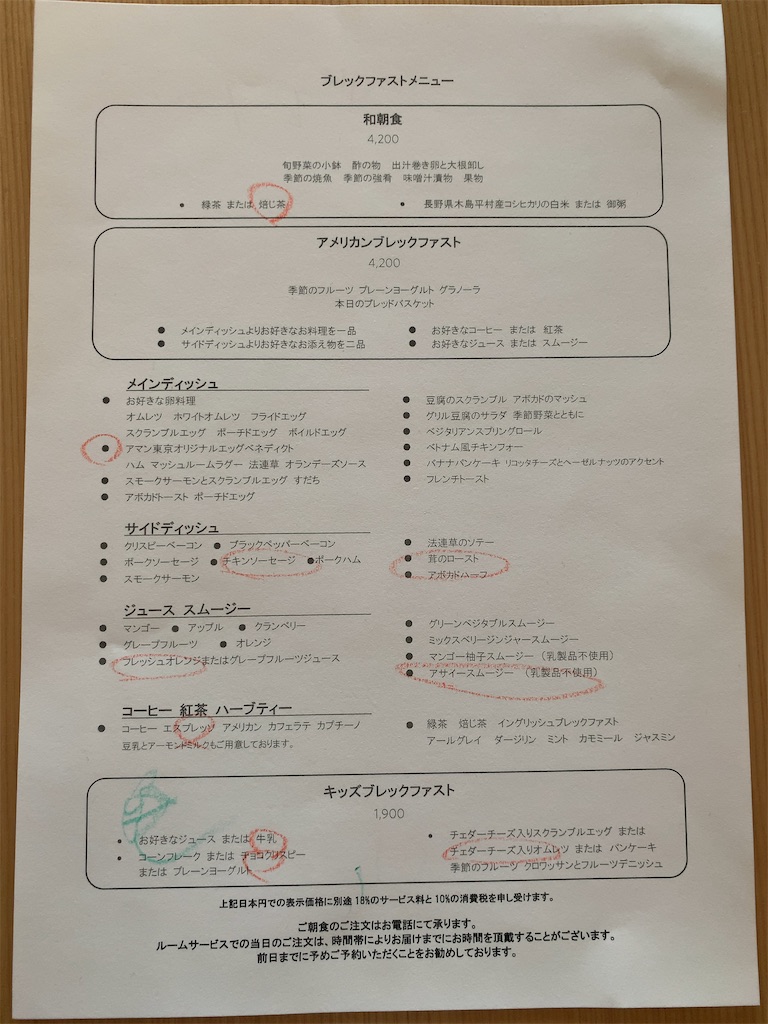 ブレックファストメニュー
和朝食
4,200
旬野菜の小鉢 酢の物 出汁巻き卵と大根卸し
季節の焼魚 季節の強肴 味噌汁漬物 果物
● 緑茶 または 焙じ茶
● 長野県木島平村産コシヒカリの白米 または 御粥
アメリカンブレックファスト
4,200
季節のフルーツ プレーンヨーグルト グラノーラ
本日のブレッドバスケット
● メインディッシュよりお好きなお料理を一品
● サイドディッシュよりお好きなお添え物を二品
● お好きなコーヒー または 紅茶
● お好きなジュース または スムージー
メインディッシュ
● お好きな卵料理
オムレツ ホワイトオムレツ フライドエッグ
スクランブルエッグ ポーチドエッグ ボイルドエッグ
● アマン東京オリジナルエッグベネディクト
ハム マッシュルームラグー 法連草 オランデーズソース
● スモークサーモンとスクランブルエッグ すだち
● アボカドトースト ポーチドエッグ
● 豆腐のスクランブル アボカドのマッシュ
● グリル豆腐のサラダ 季節野菜とともに
● ベジタリアンスプリングロール
● ベトナム風チキンフォー
● バナナパンケーキ リコッタチーズとヘーゼルナッツのアクセント
● フレンチトースト
サイドディッシュ
● クリスピーベーコン ● ブラックペッパーベーコン
● ポークソーセージ ● チキンソーセージ ● ポークハム
● スモークサーモン
● 法連草のソテー
● 茸のロースト
● アボカドハーフ
ジュース スムージー
● マンゴー ● アップル ● クランベリー
● グレープフルーツ ● オレンジ
● フレッシュオレンジまたはグレープフルーツジュース
● グリーンベジタブルスムージー
● ミックスベリージンジャースムージー
● マンゴー柚子スムージー (乳製品不使用)
● アサイースムージー (乳製品不使用)
コーヒー 紅茶 ハーブティー
● コーヒー エスプレッソ アメリカン カフェラテ カプチーノ
豆乳とアーモンドミルクもご用意しております。
● 緑茶 焙じ茶 イングリッシュブレックファスト
アールグレイ ダージリン ミント カモミール ジャスミン
キッズブレックファスト
1,900
● お好きなジュース または 牛乳
● コーンフレーク または チョコクリスピー
または プレーンヨーグルト
● チェダーチーズ入りスクランブルエッグ または
チェダーチーズ入りオムレツ または パンケーキ
季節のフルーツ クロワッサンとフルーツデニッシュ
上記日本円での表示価格に別途 18%のサービス料と 10%の消費税を申し受けます。
ご朝食のご注文はお電話にて承ります。
ルームサービスでの当日のご注文は、時間帯によりお届けまでにお時間を頂戴することがございます。
前日までに予めご予約いただくことをお勧めしております。